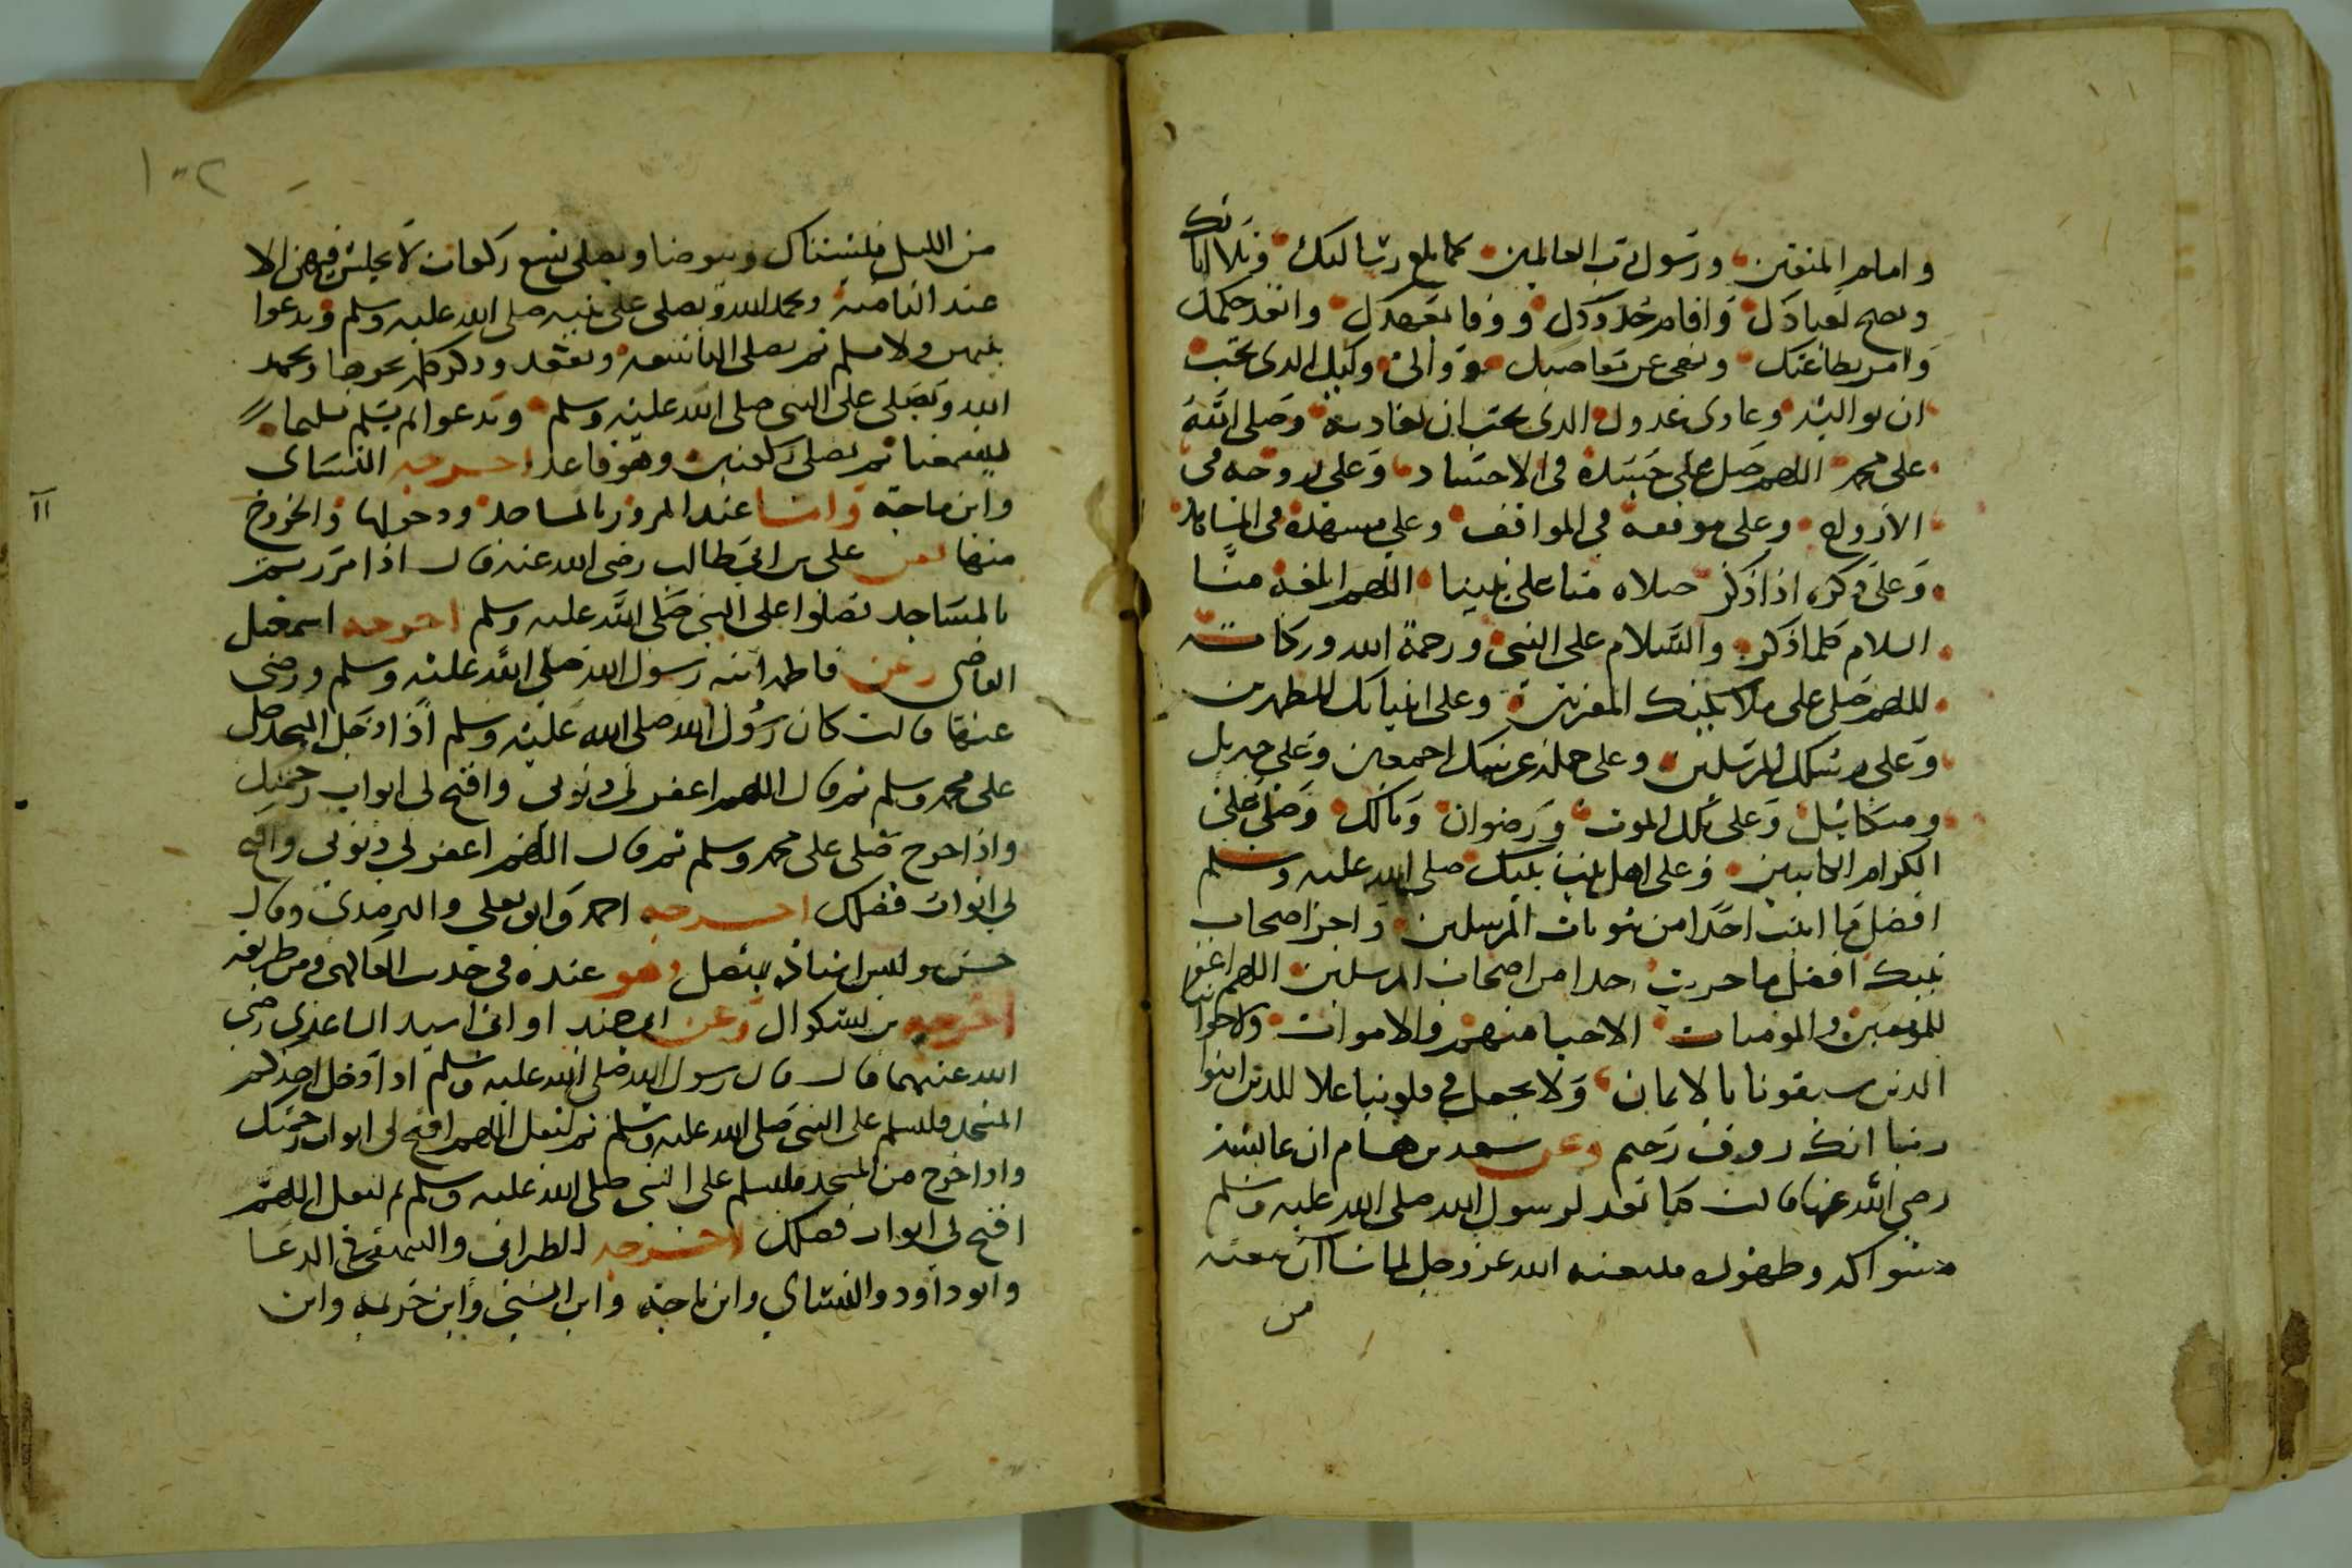 وامام المتقين ورسول رب العالمين كما بلغ رسالتك وتلا اياتك
ونصح لعبادك واقام حدودك ووفا بعهدك وانفذ حكمك
وامر بطاعتك ونهى عن معاصيك ووالى وليك الذى تحب
ان تواليه وعادى عدوك الذى تحب ان تعاديه وصلى الله
على محمد اللهم صل على جسده فى الاجساد وعلى روحه فى
الارواح وعلى موقفه فى المواقف وعلى مشهده فى المشاهد
وعلى ذكره اذا ذكر صلاه منا على نبينا اللهم ابلغه منا
السلام كلما ذكر والسلام على النبي ورحمة الله وبركاته
اللهم صل على ملائكتك المقربين وعلى انبيائك المطهرين
وعلى رسلك المرسلين وعلى حملة عرشك اجمعين وعلى جبريل
وميكائيل وعلى ملك الموت ورضوان ومالك وصل على
الكرام الكاتبين وعلى اهل بيت نبيك صلى الله عليه وسلم
افضل ما اتيت احدا من بيوتات المرسلين واجز اصحاب
نبيك افضل ما جزيت احدا من اصحاب المرسلين اللهم اغفر
للمومنين والمومنات الاحيا منهم والاموات ولاخواننا
الذين سبقونا بالايمان ولا تجعل في قلوبنا غلا للذين امنوا
ربنا انك روف رحيم وعن سعد بن هشام ان عائشة
رضي الله عنها قالت كنا نعد لرسول الله صلى الله عليه وسلم
سواكه وطهوره فيبعثه الله عز وجل لما شا ان يبعثه
من
١٠٢
من الليل فيستاك ويتوضا ويصلى تسع ركعات لا يجلس فيهن الا
عند الثامنة ويحمد الله ويصلى على نبيه صلى الله عليه وسلم ويدعوا
بينهن ولا يسلم ثم يصلى التاسعة ويقعد وذكر كلمة نحوها ويحمد
الله ويصلى على النبي صلى الله عليه وسلم ويدعوا ثم يسلم تسليما
يسمعنا ثم يصلى ركعتين وهو قاعد اخرجه النساى
وابن ماجة واما عند المرور بالمساجد ودخولها والخروج
منها فعن على بن ابي طالب رضى الله عنه قال اذا مررتم
بالمساجد فصلوا على النبي صلى الله عليه وسلم اخرجه اسمعيل
القاضى وعن فاطمة ابنة رسول الله صلى الله عليه وسلم ورضى
عنها قالت كان رسول الله صلى الله عليه وسلم اذا دخل المسجد صلى
على محمد وسلم ثم قال اللهم اغفر لى ذنوبي وافتح لى ابواب رحمتك
واذا خرج صلى على محمد وسلم ثم قال اللهم اغفر لي ذنوبى وافتح
لي ابواب فضلك اخرجه احمد وابو يعلى والترمذى وقال
حسن وليس اسناده بمتصل وهو عنده فى
اخرجه بن بشكوال وعن ابي حميد او ابى اسيد الساعدى رضى
الله عنهما قال قال رسول الله صلى الله عليه وسلم اذا دخل احدكم
المسجد فليسلم على النبى صلى الله عليه وسلم ثم ليقل اللهم افتح لى ابواب رحمتك
واذا خرج من المسجد فليسلم على النبي صلى الله عليه وسلم ثم ليقل اللهم
افتح لى ابواب فضلك اخرجه الطبرانى والبيهقى فى الدعا
وابو داود والنساي وابن ماجة وابن السني وابن خزيمة وابن